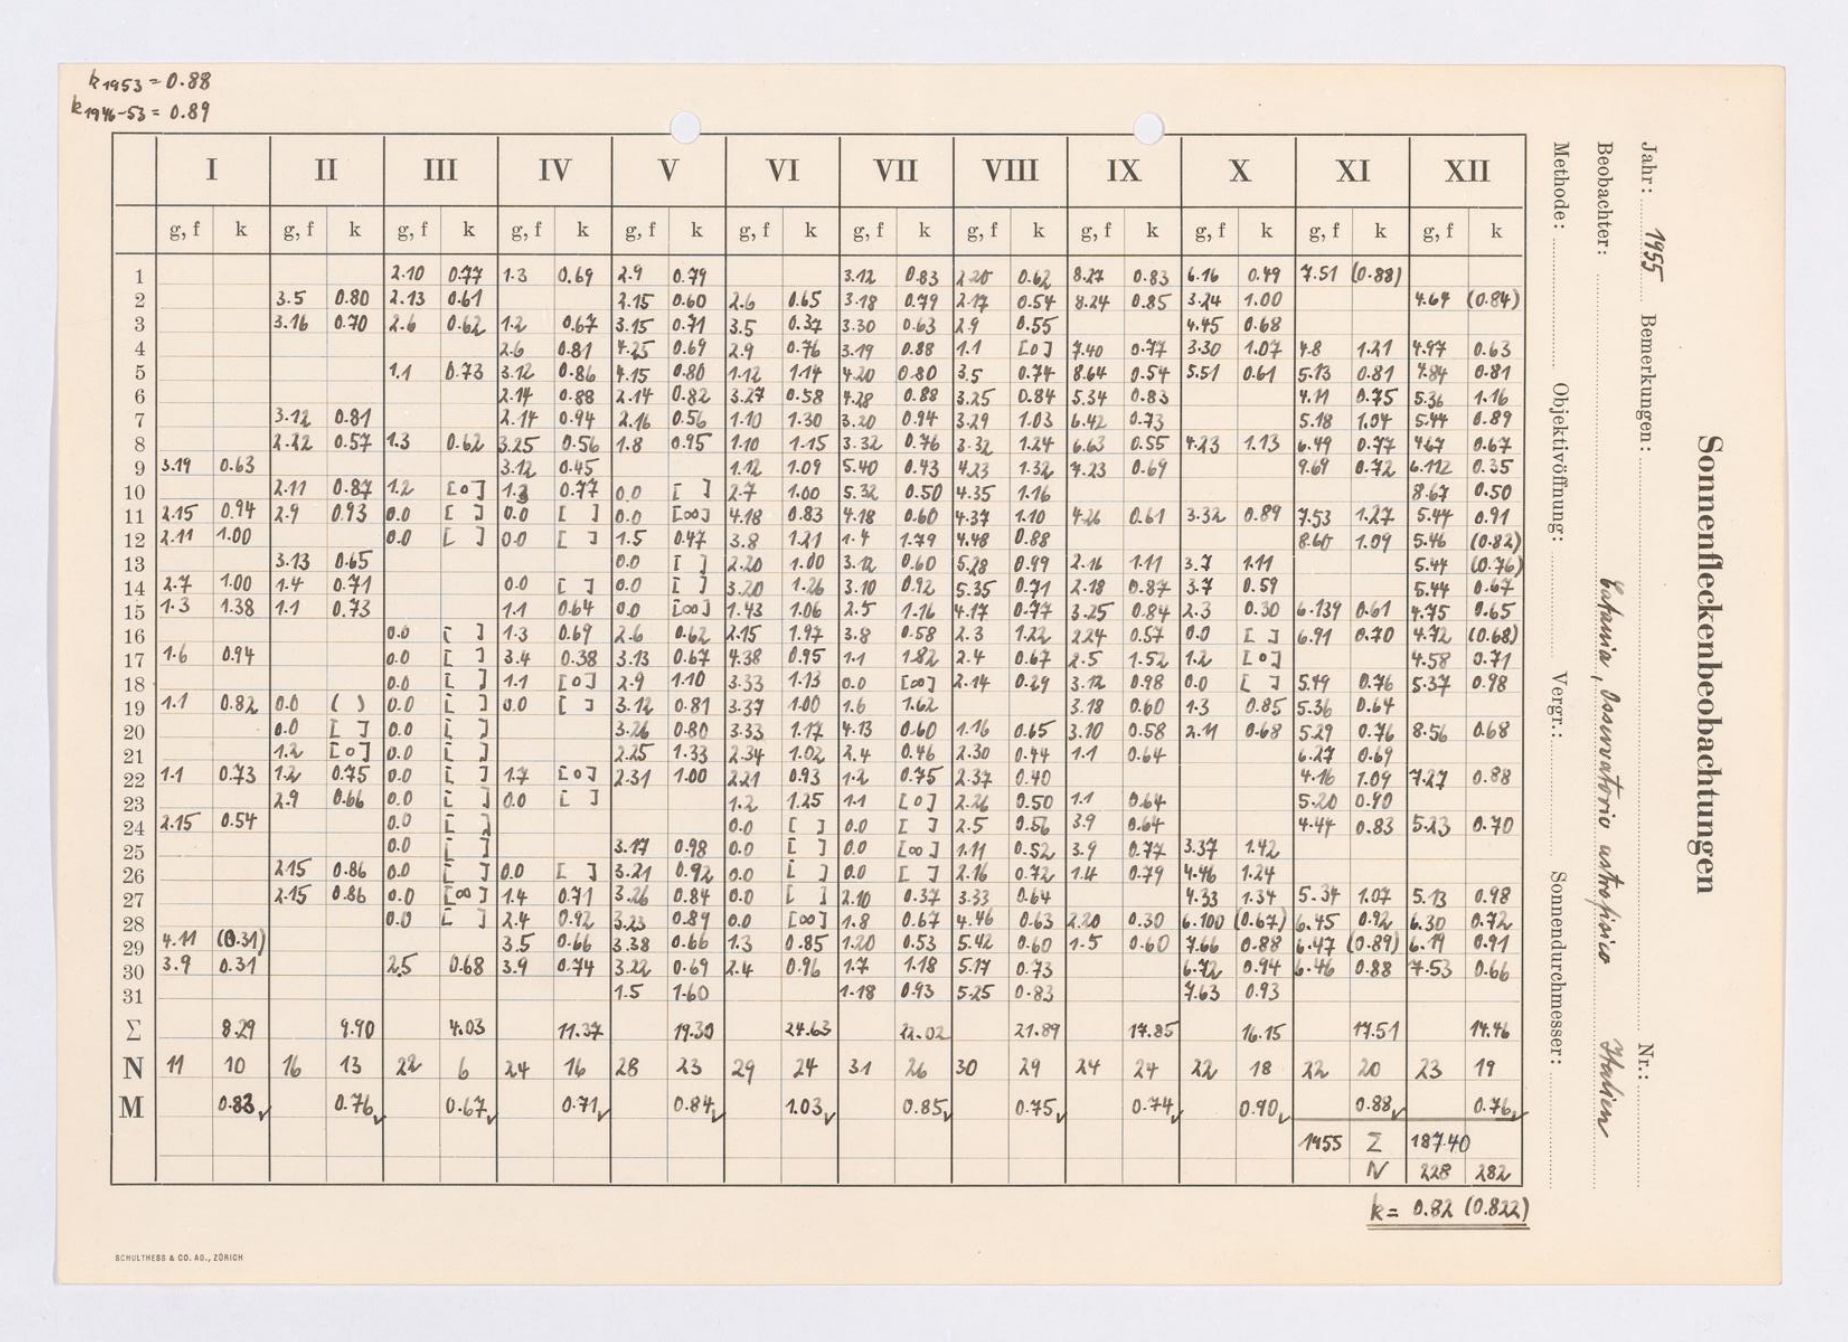 k1953 = 0.88
k1946-53 = 0.89
I II III IV V VI VII VIII IX X XI XII
g, f k g, f k g, f k g, f k g, f k g, f k g, f k g, f k g, f k g, f k g, f k g, f k
1 2.10 0.77 1.3 0.69 2.9 0.79 3.12 0.83 2.20 0.62 8.27 0.83 6.16 0.49 7.51 (0.88)
2 3.5 0.80 2.13 0.61 2.15 0.60 2.6 0.65 3.18 0.79 2.17 0.54 8.24 0.85 3.24 1.00 4.64 (0.84)
3 3.16 0.70 2.6 0.62 1.2 0.67 3.15 0.71 3.5 0.37 3.30 0.63 2.9 0.55 4.45 0.68
4 2.6 0.81 4.25 0.69 2.9 0.76 3.19 0.88 1.1 [0] 7.40 0.77 3.30 1.07 4.8 1.21 4.97 0.63
5 1.1 0.73 3.12 0.86 4.15 0.80 1.12 1.14 4.20 0.80 3.5 0.74 8.64 0.54 5.51 0.61 5.13 0.81 7.84 0.81
6 2.14 0.88 2.14 0.82 3.27 0.58 4.28 0.88 3.25 0.84 5.34 0.83 4.11 0.75 5.36 1.16
7 3.12 0.81 2.14 0.94 2.16 0.56 1.10 1.30 3.20 0.94 3.29 1.03 6.42 0.73 5.18 1.04 5.44 0.89
8 2.22 0.57 1.3 0.62 3.25 0.56 1.8 0.95 1.10 1.15 3.32 0.76 3.32 1.24 6.63 0.55 4.23 1.13 6.49 0.77 4.67 0.67
9 3.19 0.63 3.12 0.45 1.12 1.09 5.40 0.43 4.23 1.32 7.23 0.69 9.69 0.72 6.112 0.35
10 2.11 0.87 1.2 [0] 1.3 0.77 0.0 [ ] 2.7 1.00 5.32 0.50 4.35 1.16 8.67 0.50
11 2.15 0.94 2.9 0.93 0.0 [ ] 0.0 [ ] 0.0 [∞] 4.18 0.83 4.18 0.60 4.37 1.10 4.26 0.61 3.32 0.89 7.53 1.27 5.44 0.91
12 2.11 1.00 0.0 [ ] 0.0 [ ] 1.5 0.47 3.8 1.21 1.4 1.79 4.48 0.88 8.60 1.09 5.46 (0.82)
13 3.13 0.65 0.0 [ ] 2.20 1.00 3.12 0.60 5.28 0.99 2.16 1.11 3.7 1.11 5.44 (0.76)
14 2.7 1.00 1.4 0.71 0.0 [ ] 0.0 [ ] 3.20 1.26 3.10 0.92 5.35 0.71 2.18 0.87 3.7 0.59 5.44 0.67
15 1.3 1.38 1.1 0.73 1.1 0.64 0.0 [∞] 1.43 1.06 2.5 1.16 4.17 0.77 3.25 0.84 2.3 0.30 6.139 0.61 4.75 0.65
16 0.0 [ ] 1.3 0.69 2.6 0.62 2.15 1.97 3.8 0.58 2.3 1.22 2.24 0.57 0.0 [ ] 6.91 0.70 4.72 (0.68)
17 1.6 0.94 0.0 [ ] 3.4 0.38 3.13 0.67 4.38 0.95 1.1 1.82 2.4 0.67 2.5 1.52 1.2 [0] 4.58 0.71
18 0.0 [ ] 1.1 [0] 2.9 1.10 3.33 1.13 0.0 [∞] 2.14 0.29 3.12 0.98 0.0 [ ] 5.49 0.76 5.37 0.98
19 1.1 0.82 0.0 ( ) 0.0 [ ] 0.0 [ ] 3.12 0.81 3.37 1.00 1.6 1.62 3.18 0.60 1.3 0.85 5.36 0.64
20 0.0 [ ] 0.0 [ ] 3.26 0.80 3.33 1.17 4.13 0.60 1.16 0.65 3.10 0.58 2.11 0.68 5.29 0.76 8.56 0.68
21 1.2 [0] 0.0 [ ] 2.25 1.33 2.34 1.02 2.4 0.46 2.30 0.44 1.1 0.64 6.27 0.69
22 1.1 0.73 1.2 0.75 0.0 [ ] 1.7 [0] 2.31 1.00 2.21 0.93 1.2 0.75 2.37 0.40 4.16 1.09 7.27 0.88
23 2.9 0.66 0.0 [ ] 0.0 [ ] 1.2 1.25 1.1 [0] 2.26 0.50 1.1 0.64 5.20 0.90
24 2.15 0.54 0.0 [ ] 0.0 [ ] 0.0 [ ] 2.5 0.56 3.9 0.64 4.44 0.83 5.23 0.70
25 0.0 [ ] 3.17 0.98 0.0 [ ] 0.0 [∞] 1.11 0.52 3.9 0.77 3.37 1.42
26 2.15 0.86 0.0 [ ] 0.0 [ ] 3.21 0.92 0.0 [ ] 0.0 [ ] 2.16 0.72 1.4 0.79 4.46 1.24
27 2.15 0.86 0.0 [∞] 1.4 0.71 3.26 0.84 0.0 [ ] 2.10 0.37 3.33 0.64 4.33 1.34 5.34 1.07 5.13 0.98
28 0.0 [ ] 2.4 0.92 3.23 0.89 0.0 [∞] 1.8 0.67 4.46 0.63 2.20 0.30 6.100 (0.67) 6.45 0.92 6.30 0.72
29 4.11 (0.31) 3.5 0.66 3.38 0.66 1.3 0.85 1.20 0.53 5.42 0.60 1.5 0.60 7.66 0.88 6.47 (0.89) 6.19 0.91
30 3.9 0.31 2.5 0.68 3.9 0.74 3.22 0.69 2.4 0.96 1.7 1.18 5.17 0.73 6.72 0.94 6.46 0.88 7.53 0.66
31 1.5 1.60 1.18 0.93 5.25 0.83 7.63 0.93
Σ 8.29 9.90 4.03 11.37 19.30 24.63 22.02 21.89 17.85 16.15 17.51 14.46
N 11 10 16 13 22 6 24 16 28 23 29 24 31 26 30 29 24 24 22 18 22 20 23 19
M 0.83✓ 0.76✓ 0.67✓ 0.71✓ 0.84✓ 1.03✓ 0.85✓ 0.75✓ 0.74✓ 0.90✓ 0.88✓ 0.76✓
1955 Σ 187.40
N 228 282
k = 0.82 (0.822)
SCHULTHESS & CO. AG., ZÜRICH
Sonnenfleckenbeobachtungen
Jahr: 1955 Bemerkungen: Nr.:
Beobachter: Catania, Osservatorio astrofisico Italien
Methode: Objektivöffnung: Vergr.: Sonnendurchmesser: